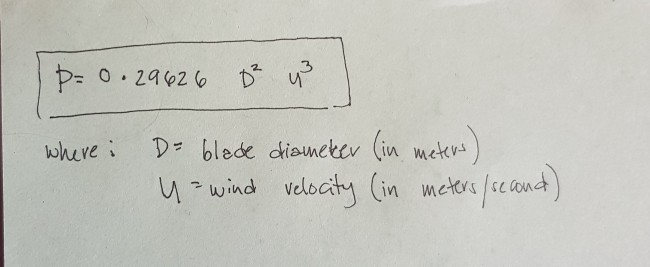 P= 0.29626 D² u³
where: D= blade diameter (in meters)
u = wind velocity (in meters/second)